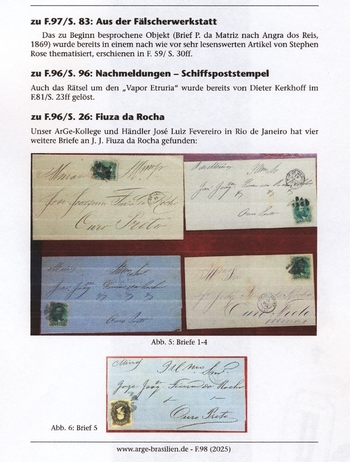 zu F.97/S. 83: Aus der Fälscherwerkstatt
Das zu Beginn besprochene Objekt (Brief P. da Matriz nach Angra dos Reis,
1869) wurde bereits in einem nach wie vor sehr lesenswerten Artikel von Stephen
Rose thematisiert, erschienen in F. 59/ S. 30ff.
zu F.96/S. 96: Nachmeldungen – Schiffspoststempel
Auch das Rätsel um den „Vapor Etruria“ wurde bereits von Dieter Kerkhoff im
F.81/S. 23ff gelöst.
zu F.96/S. 26: Fiuza da Rocha
Unser ArGe-Kollege und Händler José Luiz Fevereiro in Rio de Janeiro hat vier
weitere Briefe an J. J. Fiuza da Rocha gefunden:
Ouro Preto
Abb. 5: Briefe 1-4
Ouro Preto
Abb. 6: Brief 5
www.arge-brasilien.de - F.98 (2025)